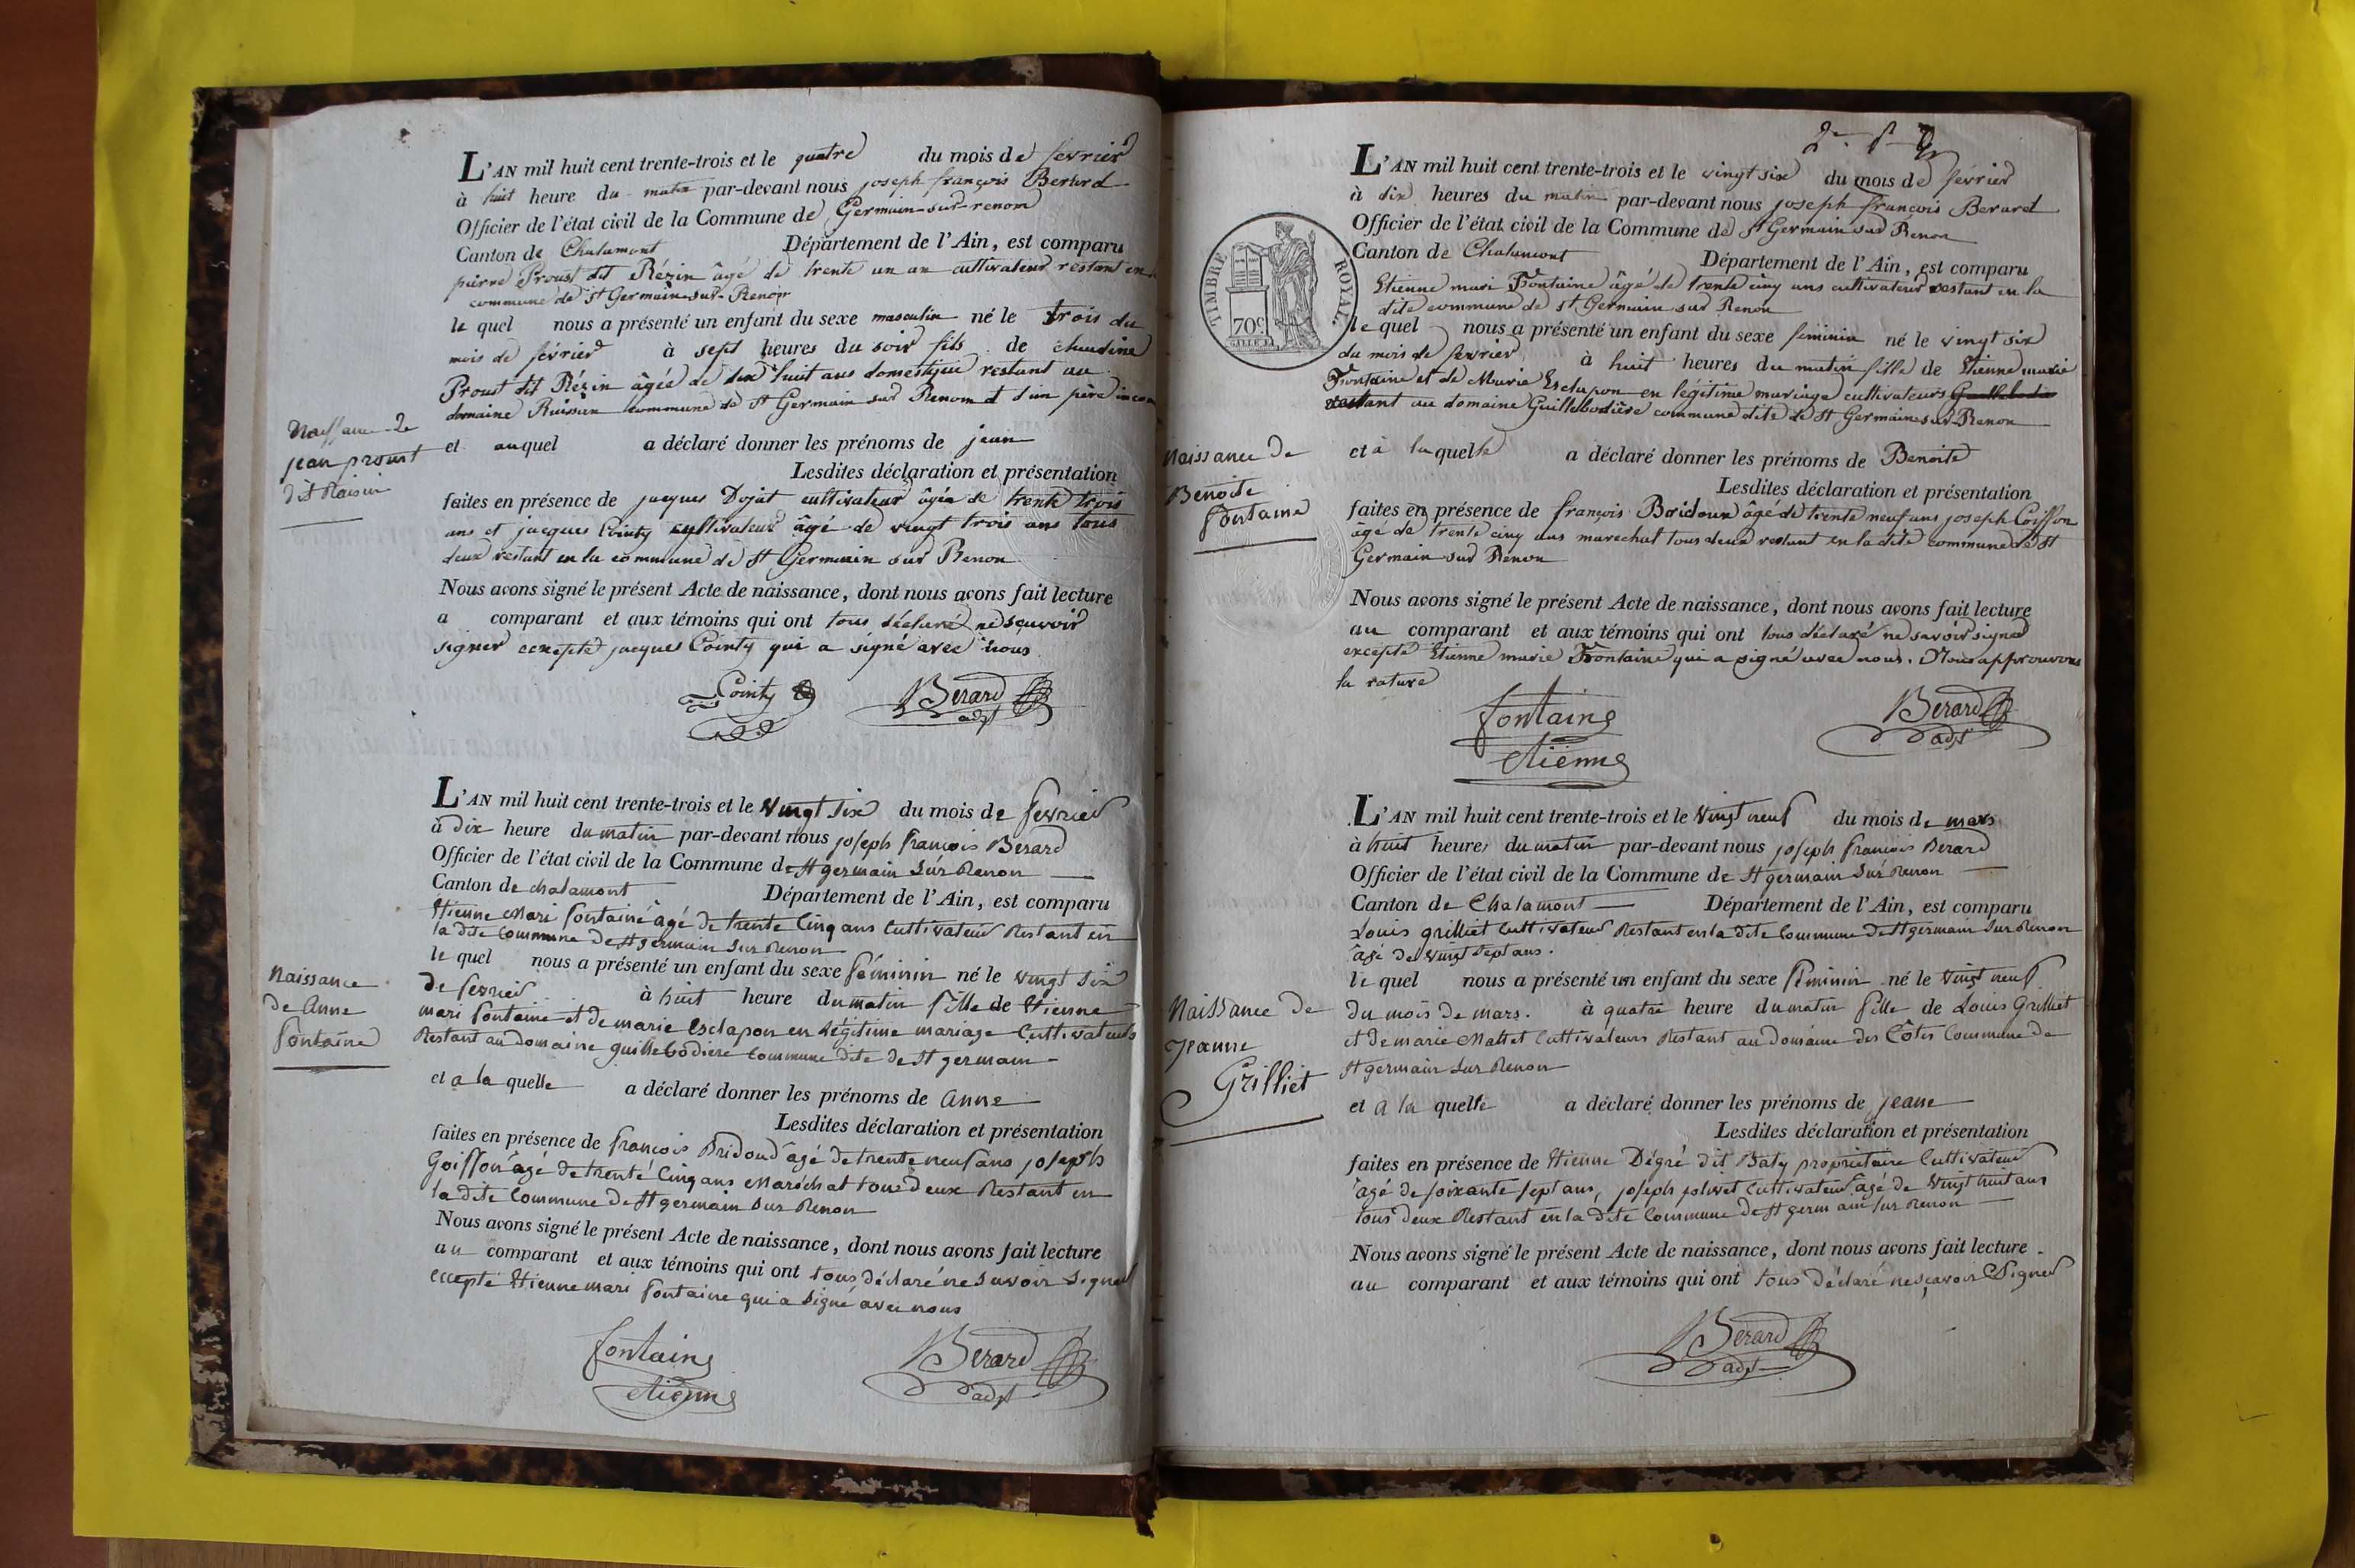 L'AN mil huit cent trente-trois et le quatre du mois de fevrier
à huit heure du matin par-devant nous joseph françois Berard
Officier de l'état civil de la Commune de Germain-sur-renom
Canton de Chalamont Département de l'Ain, est comparu
pierre Proust dit Rézin âgé de trente un an cultivateur restant en
commune de St Germain-sur-Renom
le quel nous a présenté un enfant du sexe masculin né le trois du
mois de février à sept heures du soir fils de claudine
Proust dit Rézin âgée de dix huit ans domestique restant au
domaine Ruissien commune de St Germain sur Renom et d'un père
Naissance de
jean proust
dit Raisin
et auquel a déclaré donner les prénoms de jean
Lesdites déclaration et présentation
faites en présence de jacques Dojat cultivateur âgée de trente trois
ans et jacques Cointy cultivateur âgé de vingt trois ans tous
deux restant en la commune de St Germain sur Renon
Nous avons signé le présent Acte de naissance, dont nous avons fait lecture
a comparant et aux témoins qui ont tous déclaré ne sçavoir
signer excepté jacques Cointy qui a signé avec nous
Cointy Berard
adjt
L'AN mil huit cent trente-trois et le vingt six du mois de fevrier
à dix heure du matin par-devant nous joseph francois Berard
Officier de l'état civil de la Commune de St germain sur Renon
Canton de chalamont Département de l'Ain, est comparu
Etienne Mari fontaine âgé de trente cinq ans cultivateur Restant en
la dite commune de St germain sur renon
le quel nous a présenté un enfant du sexe féminin né le vingt six
de fevrier à huit heure du matin fille de Etienne
mari fontaine et de marie Esclapon en légitime mariage cultivateurs
Restant au domaine guillebodiere commune dite de St germain
Naissance
de Anne
fontaine
et a la quelle a déclaré donner les prénoms de anne
Lesdites déclaration et présentation
faites en présence de francois Bridoud âgé de trente neuf ans joseph
Goiffon âgé de trente cinq ans Maréchal tous deux Restant en
la dite commune de St germain sur Renon
Nous avons signé le présent Acte de naissance, dont nous avons fait lecture
au comparant et aux témoins qui ont tous déclaré ne savoir signer
excepté Etienne mari fontaine qui a signé avec nous
fontaine Berard
etienne adjt
L'AN mil huit cent trente-trois et le vingt six du mois de février
à dix heures du matin par-devant nous joseph françois Berard
Officier de l'état civil de la Commune de St Germain sur Renon
Canton de Chalamont Département de l'Ain, est comparu
Etienne mari Fontaine âgé de trente cinq ans cultivateur restant en la
dite commune de St Germain sur Renon
TIMBRE ROYAL
70c
le quel nous a présenté un enfant du sexe feminin né le vingt six
du mois de fevrier à huit heures du matin fille de Etienne marie
Fontaine et de Marie Esclapon en légitime mariage cultivateurs
restant au domaine Guillebodière commune dite de St Germain sur Renon
Naissance de
Benoite
fontaine
et à la quelle a déclaré donner les prénoms de Benoite
Lesdites déclaration et présentation
faites en présence de françois Boridoux âgé de trente neuf ans joseph Coiffon
âgé de trente cinq ans marechal tous deux restant en la dite commune de St
Germain sur Renon
Nous avons signé le présent Acte de naissance, dont nous avons fait lecture
au comparant et aux témoins qui ont tous déclaré ne savoir signer
excepté Etienne marie Fontaine qui a signé avec nous. Nous approuvons
la rature
fontaine Berard
etienne adjt
L'AN mil huit cent trente-trois et le vingt neuf du mois de mars
à huit heures du matin par-devant nous joseph francois Berard
Officier de l'état civil de la Commune de St germain sur renon
Canton de Chalamont Département de l'Ain, est comparu
Louis grilliet cultivateur Restant en la dite commune de St germain sur Renon
âgé de vingt sept ans.
le quel nous a présenté un enfant du sexe féminin né le vingt neuf
du mois de mars. à quatre heure du matin fille de Louis Grilliet
et de marie Mattet cultivateurs Restant au domaine des Côtes commune de
St germain sur Renon
Naissance de
jeanne
Grilliet
et a la quelle a déclaré donner les prénoms de jeane
Lesdites déclaration et présentation
faites en présence de Etienne Dégré dit Baty propriétaire cultivateur
âgé de soixante sept ans, joseph jolivet cultivateur âgé de vingt huit ans
tous deux Restant en la dite commune de St germain sur renon
Nous avons signé le présent Acte de naissance, dont nous avons fait lecture
au comparant et aux témoins qui ont tous déclaré ne sçavoir Signer
Berard
adjt